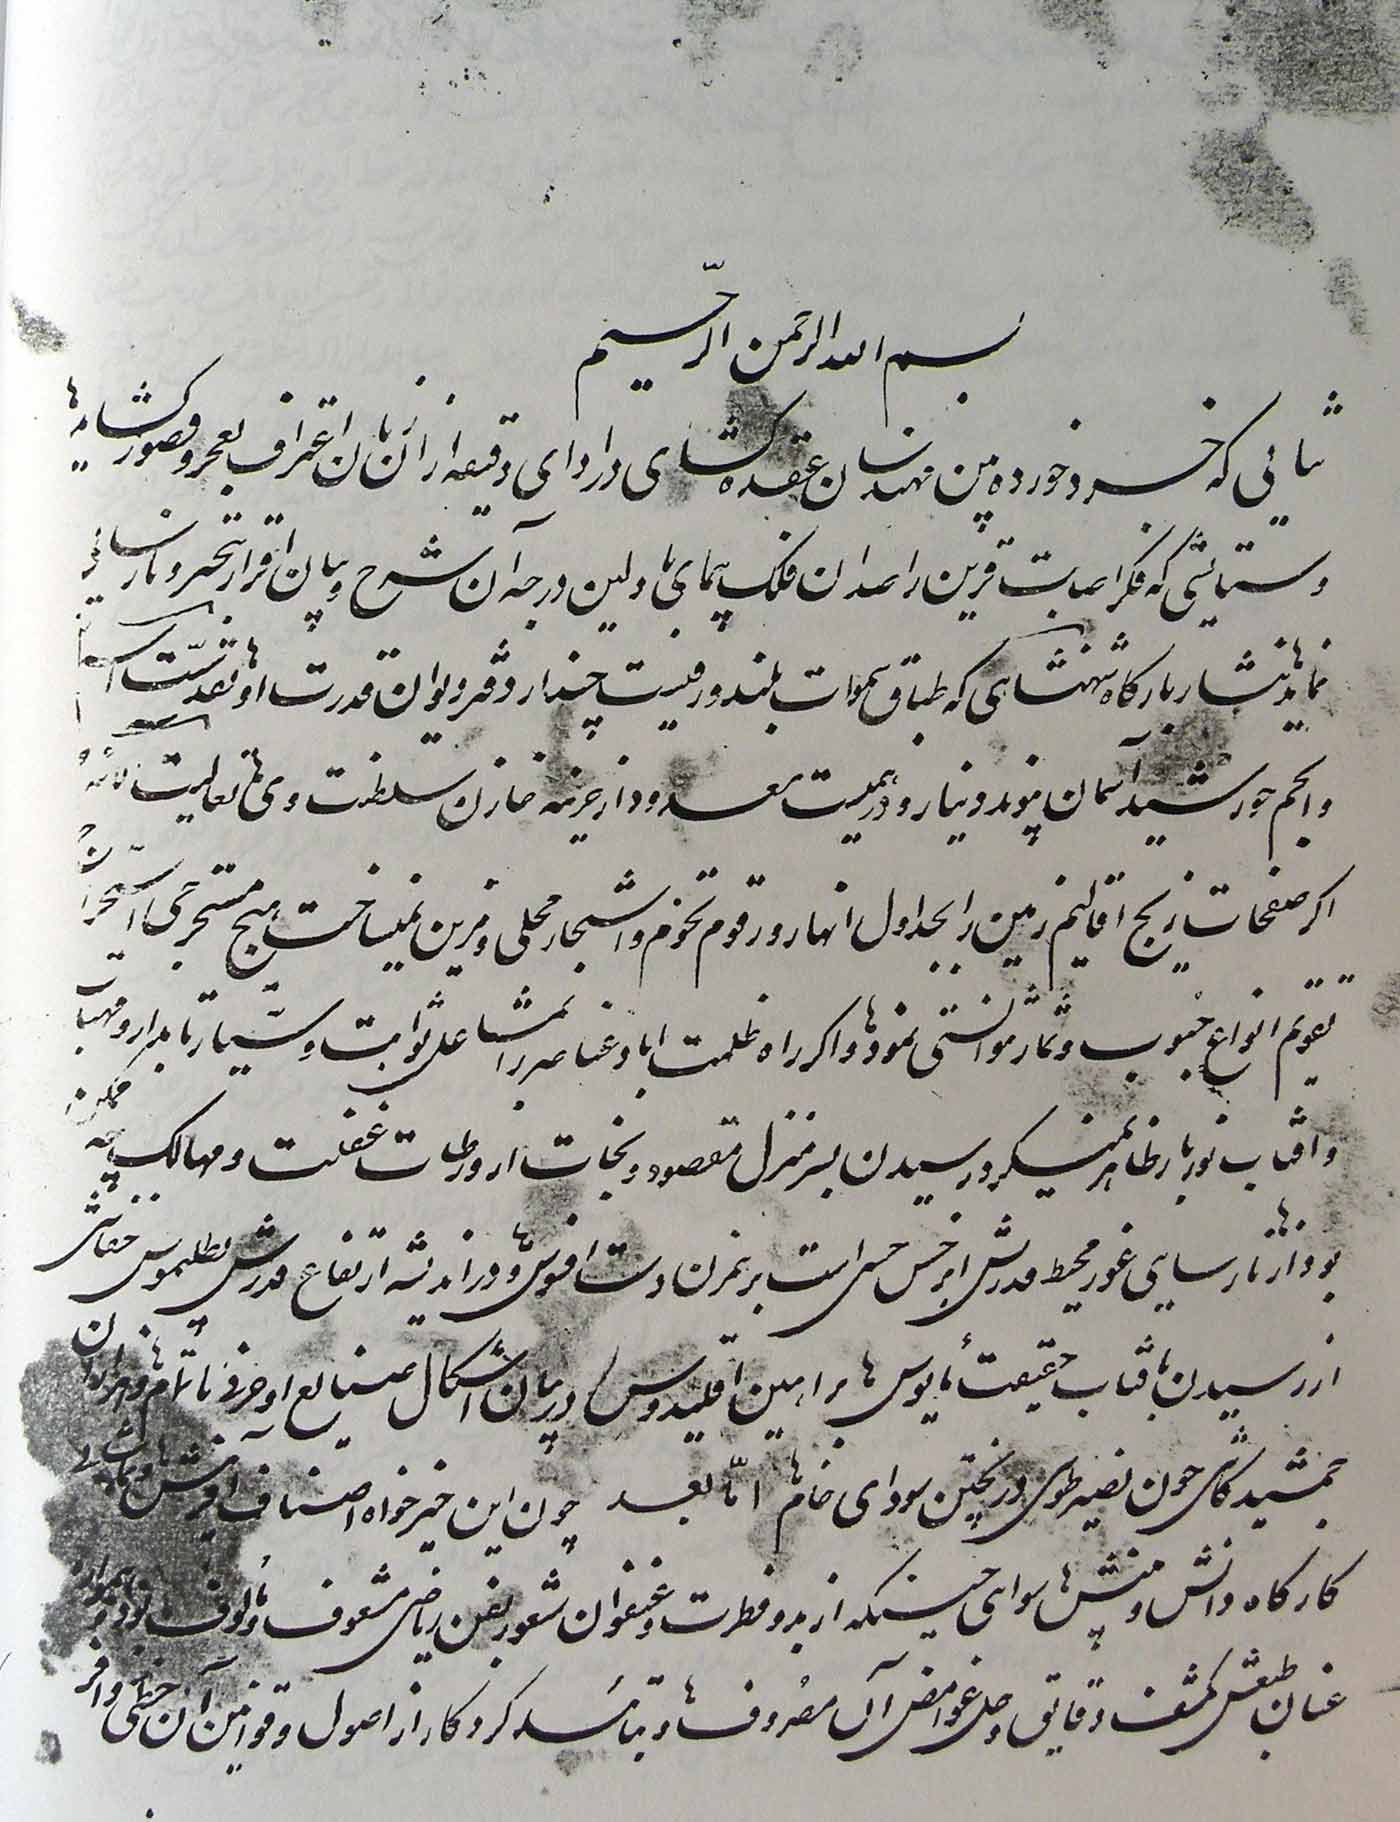 بسم الله الرحمن الرحیم
ثنائی که خرد خورده بین مهندسان عقده کشای در ادای دقیقه از ان زبان اعتراف بعجز و قصور کشاید
و ستایشی که فکر اصابت قرین راصدان فلک پیمای باولین درجه آن شرح و بیان اقرار بتحیر و نارسائی
نماید نثار بارکاه شهنشاهی که طباق سموات بلند و رفیع چند از دفتر دیوان قدرت او تقدست
و انجم خورشید آسمان پیوند دیناری و درهمیست معدود از خزینه خازن سلطنت وی تعالیت
اکر صفحات زیج اقالیم زمین را بجداول انهار و رقوم تخوم و اشجار محلی و مزین نمیساخت هیچ مستخرجی استخراج
تقویم انواع حبوب و ثمار نتوانستی نمود و اکر راه ظلمت اباد عناصر را بمشاعل ثوابت و سیار تابدار و مهتاب
و افتاب نوربار ظاهر نمیکرد رسیدن بسر منزل مقصود و نجات از ورطات غفلت و مهالک چه ممکن
بود از نارسایی غور محیط قدرتش ابرخس حس است بر هم زنان دست افسوس و در اندیشه ارتفاع قدرش بطلمیوس خفاشی
از رسیدن بافتاب حقیقت مایوس براهین اقلیدوس در بیان اشکال صنایع او حرفی ناتمام و هزاران
جمشید کاشی چون نصیر طوسی در پختن سودای خام اما بعد چون این خیرخواه اصناف آفرینش
کارکاه دانش و بینش سوای جیسنکه از بدو فطرت و عنفوان شعور بفن ریاضی مشعوف و مالوف بود و همواره
عنان طبعش بکشف دقایق و حل غوامض آن مصروف و بتائید کردکار از اصول و قوانین آن حظی وافر